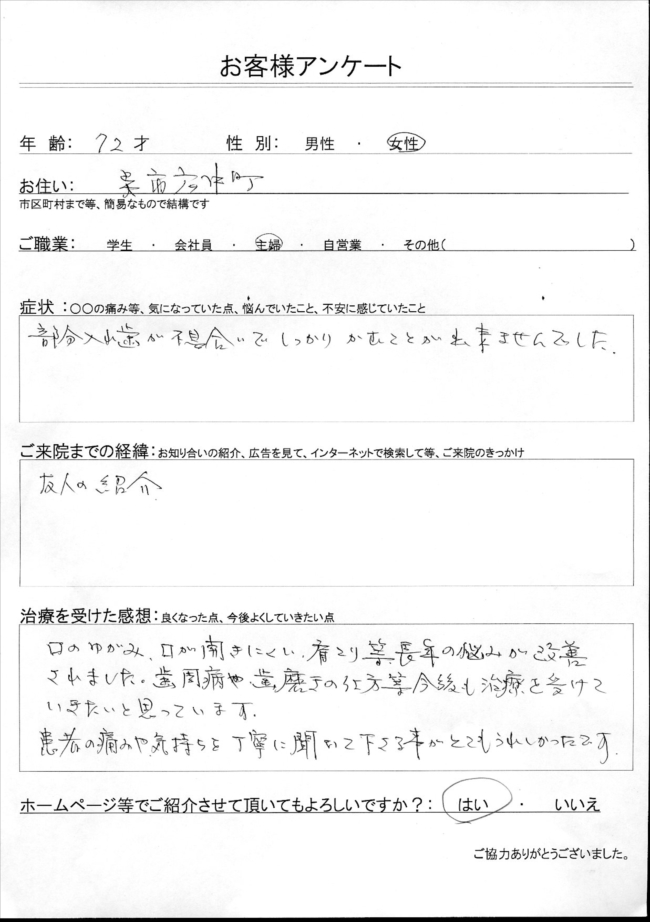 お客様アンケート
年 齢： 72才 性 別： 男性 ・ 女性
お住い： 呉市広 町
市区町村まで等、簡易なもので結構です
ご職業： 学生 ・ 会社員 ・ 主婦 ・ 自営業 ・ その他( )
症状：〇〇の痛み等、気になっていた点、悩んでいたこと、不安に感じていたこと
部分入れ歯が不具合いでしっかりかむことが出来ませんでした.
ご来院までの経緯：お知り合いの紹介、広告を見て、インターネットで検索して等、ご来院のきっかけ
友人の紹介
治療を受けた感想：良くなった点、今後よくしていきたい点
口のゆがみ、口が開きにくい、肩こり等長年の悩みが改善
されました。歯周病や歯磨きの仕方等今後も治療を受けて
いきたいと思っています.
患者の痛みや気持ちを丁寧に聞いて下さる事がとてもうれしかったです.
ホームページ等でご紹介させて頂いてもよろしいですか？： はい ・ いいえ
ご協力ありがとうございました。